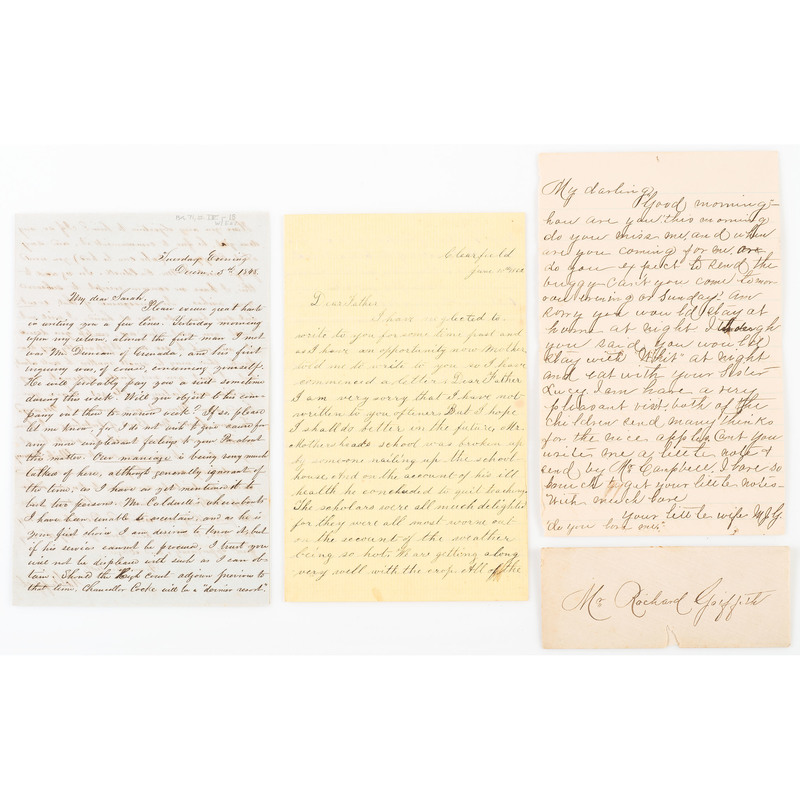 Tuesday Evening
Decem. 5th 1848.
My dear Sarah,
Please excuse great haste
in writing you a few lines. Yesterday morning
upon my return, almost the first man I met
was Mr Duncan of Grenada, and his first
inquiry was, of course, concerning yourself.
He will probably pay you a visit sometime
during this week. Will you object to his com-
pany out there to-morrow week? If so please
let me know, for I do not wish to give cause for
any more unpleasant feelings to you Pa about
this matter. Our marriage is being very much
talked of here, although generally ignorant of
the time, as I have as yet mentioned it to
but two persons. Mr. Caldwell's whereabouts
I have been unable to ascertain, and as he is
your first choice I am desirous to know it, but
if his services cannot be procured, I trust you
will not be displeased with such as I can ob-
tain. Should the High Court adjourn previous to
that time, Chancellor Cocke will be a "dernier resort".
Clearfield
June
Dear Father
I have neglected to
write to you for some time past and
as I have an opportunity now Mother
told me to write to you so I have
commenced a letter. Dear Father
I am very sorry that I have not
written to you oftener. But I hope
I shall do better in the future. Mr.
Motherheads school was broken up
by someone writing up the school
house and on the account of his ill
health he concluded to quit teaching
The scholars were all much delighted
for they were all most worn out
on the account of the weather
being so hot. We are getting along
very well with the crop. All of the
My darling
Good morning-
how are you this morning
do you miss me and when
are you coming for me, or
do you expect to send the
buggy. Can't you come tomor-
row evening or Sunday. Am
sorry you would stay at
home at night I
you said you would
stay with Whit at night
and eat with your Sister
Lucy. I am have a very
pleasant visit, both of the
children send many thinks
for the nice apples. Cant you
write me a little note &
send by Mr Campbell. I love so
much to get your little notes-
With much love
Your little wife M.J.G.
do you love me;
Mr Richard Griffith